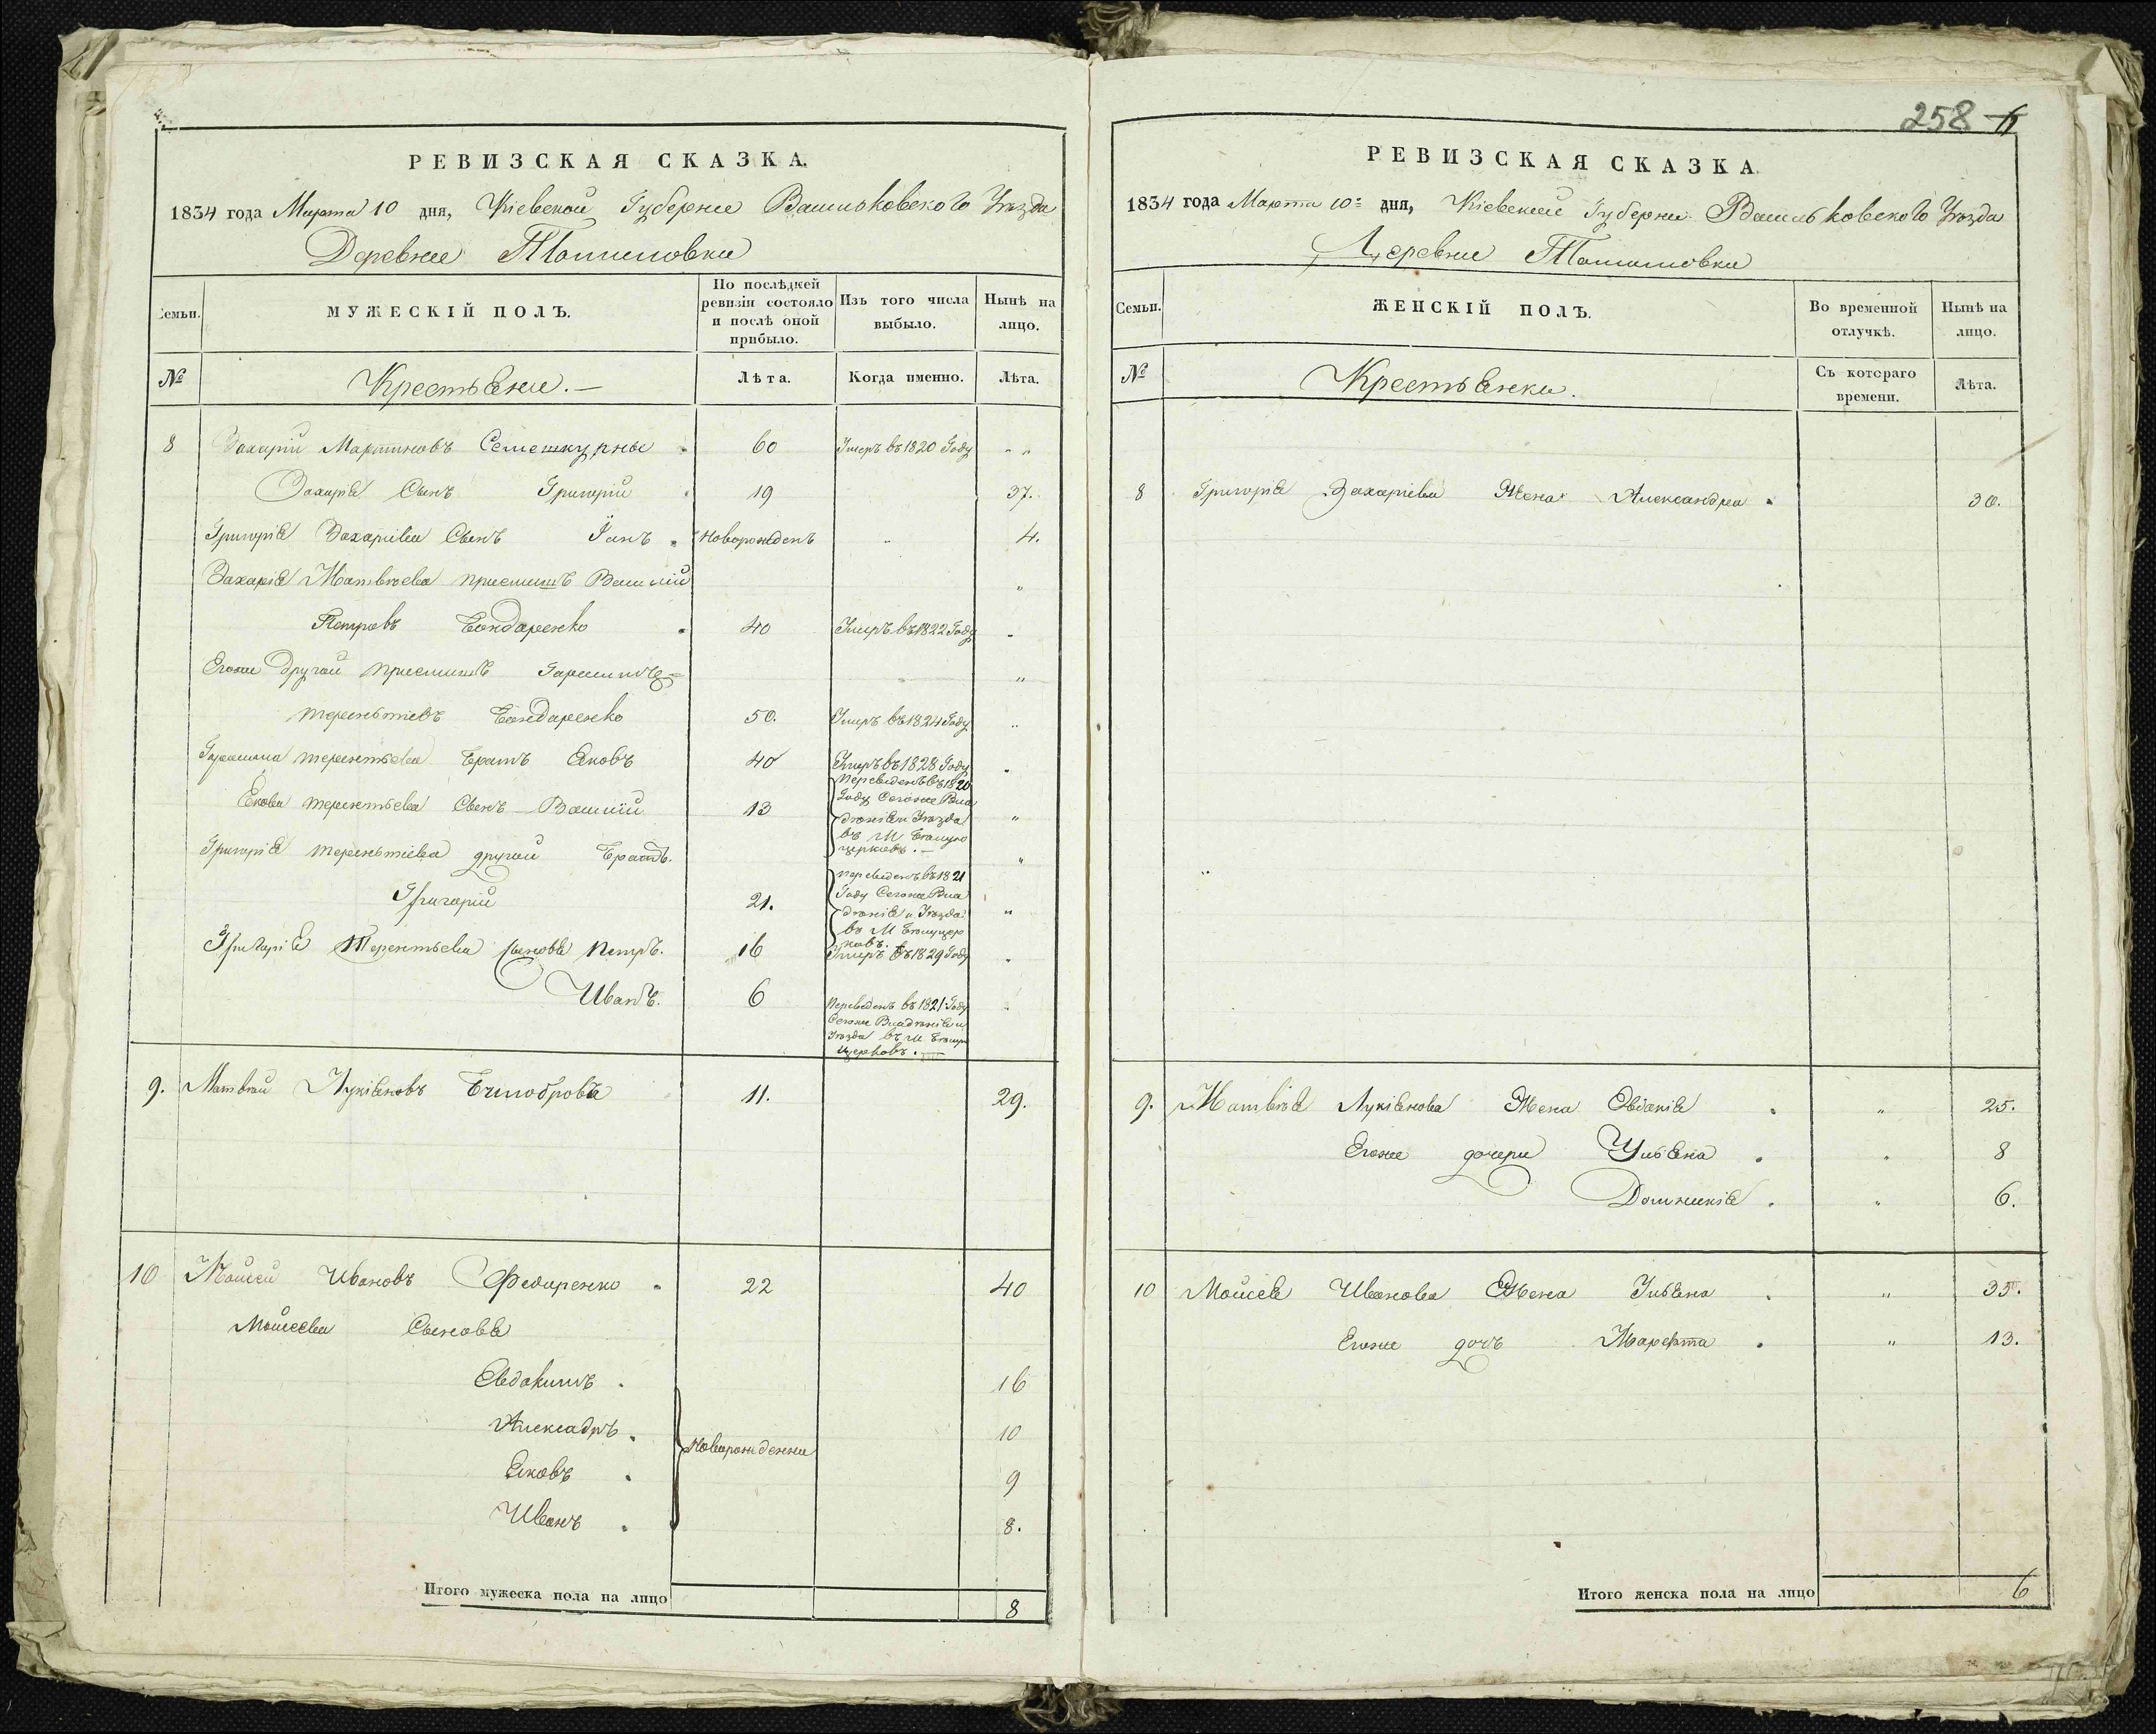 РЕВИЗСКАЯ СКАЗКА.
1834 года Марта 10 дня, Кіевской Губерніе Васильковского Уѣзда
Деревне Томиловки
Семьи.
МУЖЕСКІЙ ПОЛЪ.
По послѣдней ревизіи состояло и послѣ оной прибыло.
Изъ того числа выбыло.
Нынѣ на лицо.
№
Крестьяне. —
Лѣта.
Когда именно.
Лѣта.
8 Захарій Мартиновъ 60 Умеръ въ 1820 Году „ „
Захарія Сынъ Григорій 19 37.
Григорія Захаріева Сынъ Іанъ Новорожденъ „ 4.
Захарія Матвѣева приемишъ Василій „
Петровъ Бондаренко 40 Умеръ въ 1822 Году „
Егоже другой приемишъ „
терентіевъ Бондаренко 50. Умеръ въ 1824 Году „
терентьева Братъ Яковъ 40 Умеръ въ 1828 Году „
Якова терентьева Сынъ Василій 13 Переведенъ въ 1820
Году Сегоже Вла
дѣнія и Уѣзда „
въ М Бѣлую
церковъ. —
Григорія терентіева другой Братъ. „
Григорій 21. переведенъ въ 1821
Году Сегоже Вла
дѣнія и Уѣзда „
въ М Бѣлуцер
ковъ.
Григорія Терентьева сыновья петръ. 16 Умеръ въ 1829 Году „
Иванъ. 6 Переведенъ въ 1821 Году „
Сегоже Владѣнія и
Уѣзда въ М Бѣлую
церковъ. —
9. Матвѣй Лукіяновъ 11. 29.
10 Мойсей Ивановъ Федоренко 22 40
Мойсеева Сыновья
Евдокимъ 16
Алексадръ 10
Яковъ Новорожденне 9
Иванъ 8.
Итого мужеска пола на лицо 8
258 11
РЕВИЗСКАЯ СКАЗКА.
1834 года Марта 10 дня, Кіевской Губерни Васильковского Уѣзда
Деревне Томиловки
Семьи.
ЖЕНСКІЙ ПОЛЪ.
Во временной отлучкѣ.
Нынѣ на лицо.
№
Крестьянки.
Съ котораго времени.
Лѣта.
8 Григорія Захаріева Жена Александра 30.
9. Матвѣя Лукіянова Жена Євдокія „ 25.
Егоже дочери Ульяна „ 8
Домникія „ 6.
10 Мойсея Иванова Жена Ульяна „ 35.
Егоже дочъ Марфта „ 13.
Итого женска пола на лицо 6